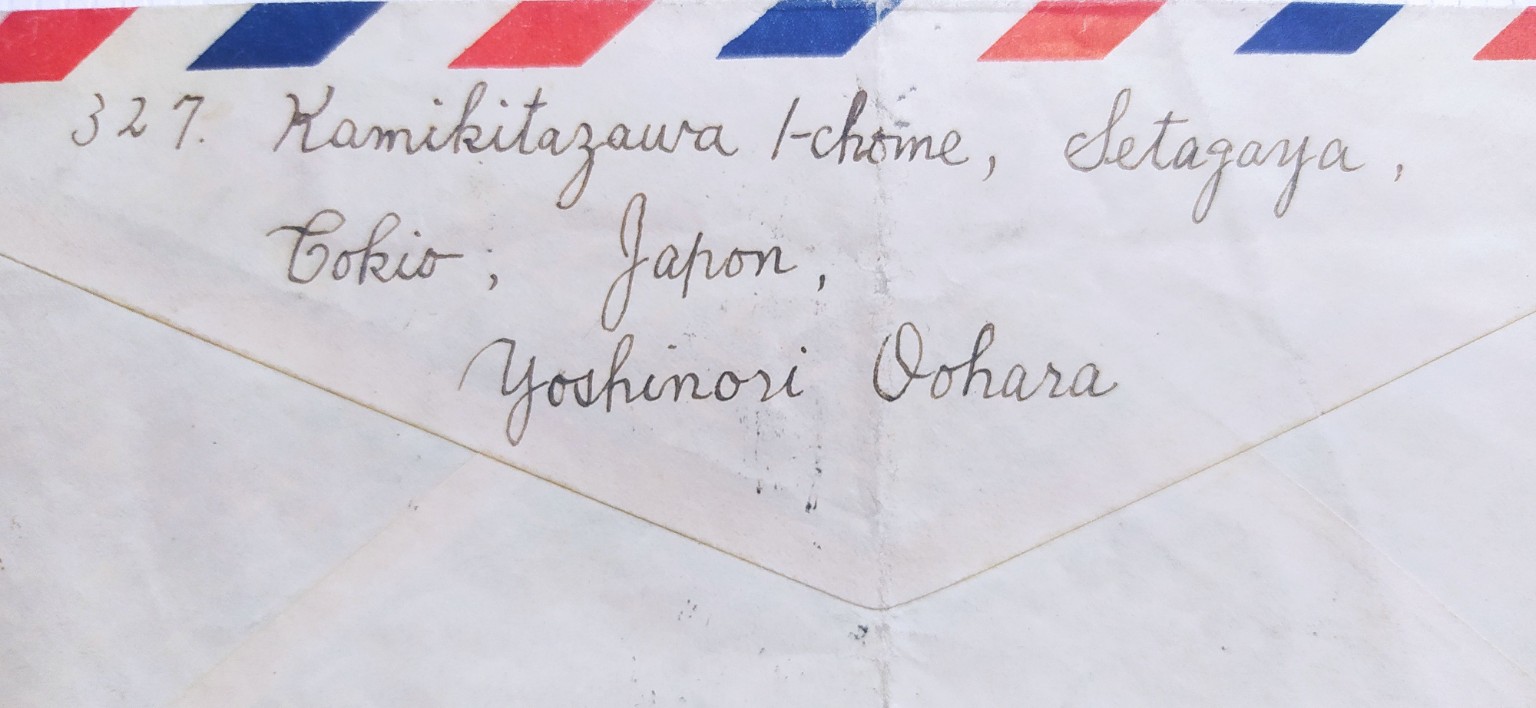 327. Kamikitazawa 1-chome, Setagaya,
Tokio, Japon,
Yoshinori Oohara